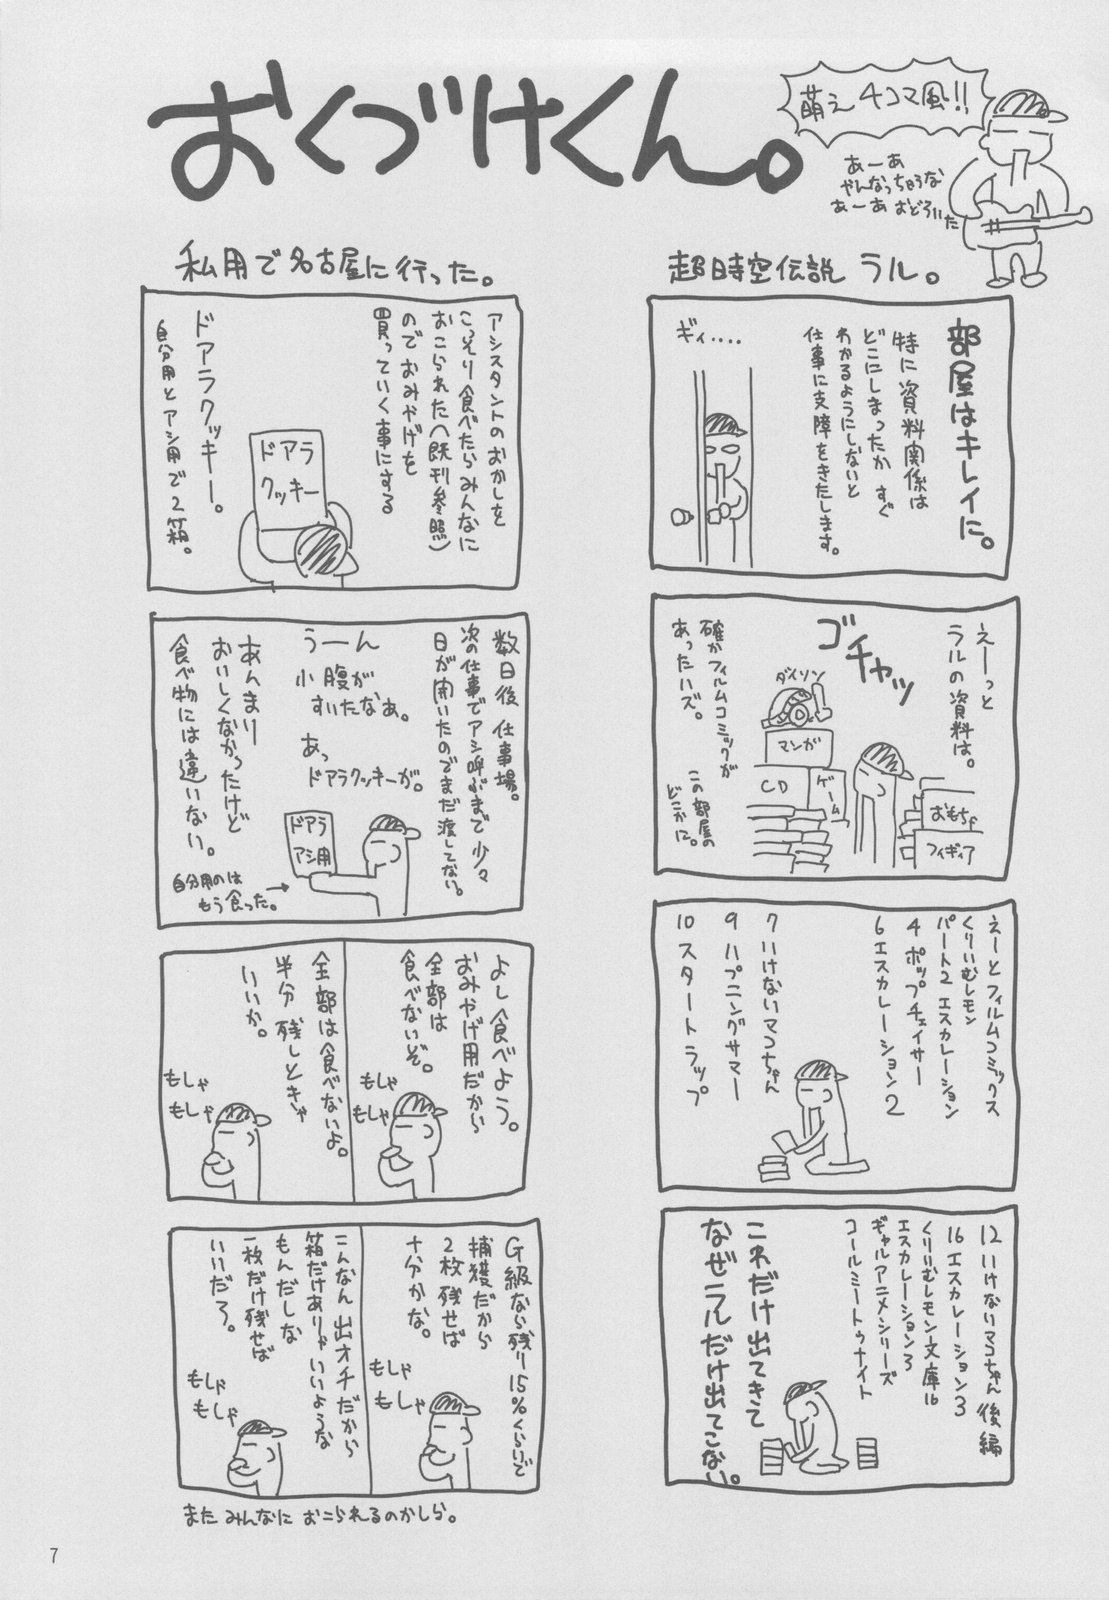 おくづけくん。
萌え4コマ風!!
あーあ
やんなっちゃうな
あーあ おどろいた
超時空伝説 ラル。
部屋はキレイに。
特に資料関係は
どこにしまったか すぐ
わかるようにしないと
仕事に支障をきたします。
ギィ‥‥
えーっと
ラルの資料は。
ゴチャッ
ダイソン
マンガ
CD
ゲーム
おもちゃ
フィギィア
確かフィルムコミックが
あったハズ。
この部屋の
どこかに。
えーとフィルムコミックス
くりいむレモン
パート2 エスカレーション
4 ポップチェイサー
6 エスカレーション2
7 いけないマコちゃん
9 ハプニングサマー
10 スタートラップ
12 いけないマコちゃん 後編
16 エスカレーション3
くりいむレモン文庫16
エスカレーション3
ギャルアニメシリーズ
コールミートゥナイト
これだけ出てきて
なぜラルだけ出てこない。
私用で名古屋に行った。
アシスタントのおかしを
こっそり食べたらみんなに
おこられた(既刊参照)
のでおみやげを
買っていく事にする
ドアラ
クッキー
ドアラクッキー。
自分用とアシ用で2箱。
数日後 仕事場。
次の仕事でアシ呼ぶまで少々
日が開いたのでまだ渡してない。
うーん
小腹が
すいたなあ。
あっ
ドアラクッキーが。
ドアラ
アシ用
あんまり
おいしくなかったけど
食べ物には違いない。
自分用のは
もう食った。→
よし食べよう。
おみやげ用だから
全部は
食べないぞ。
もしゃ
もしゃ
全部は食べないよ。
半分 残しときゃ
いいか。
もしゃ
もしゃ
G級なら残り15%くらいで
捕獲だから
2枚残せば
十分かな。
もしゃ
もしゃ
こんなん出オチだから
箱だけありゃいいような
もんだしな
一枚だけ残せば
いいだろ。
もしゃ
もしゃ
また みんなに おこられるのかしら。
7